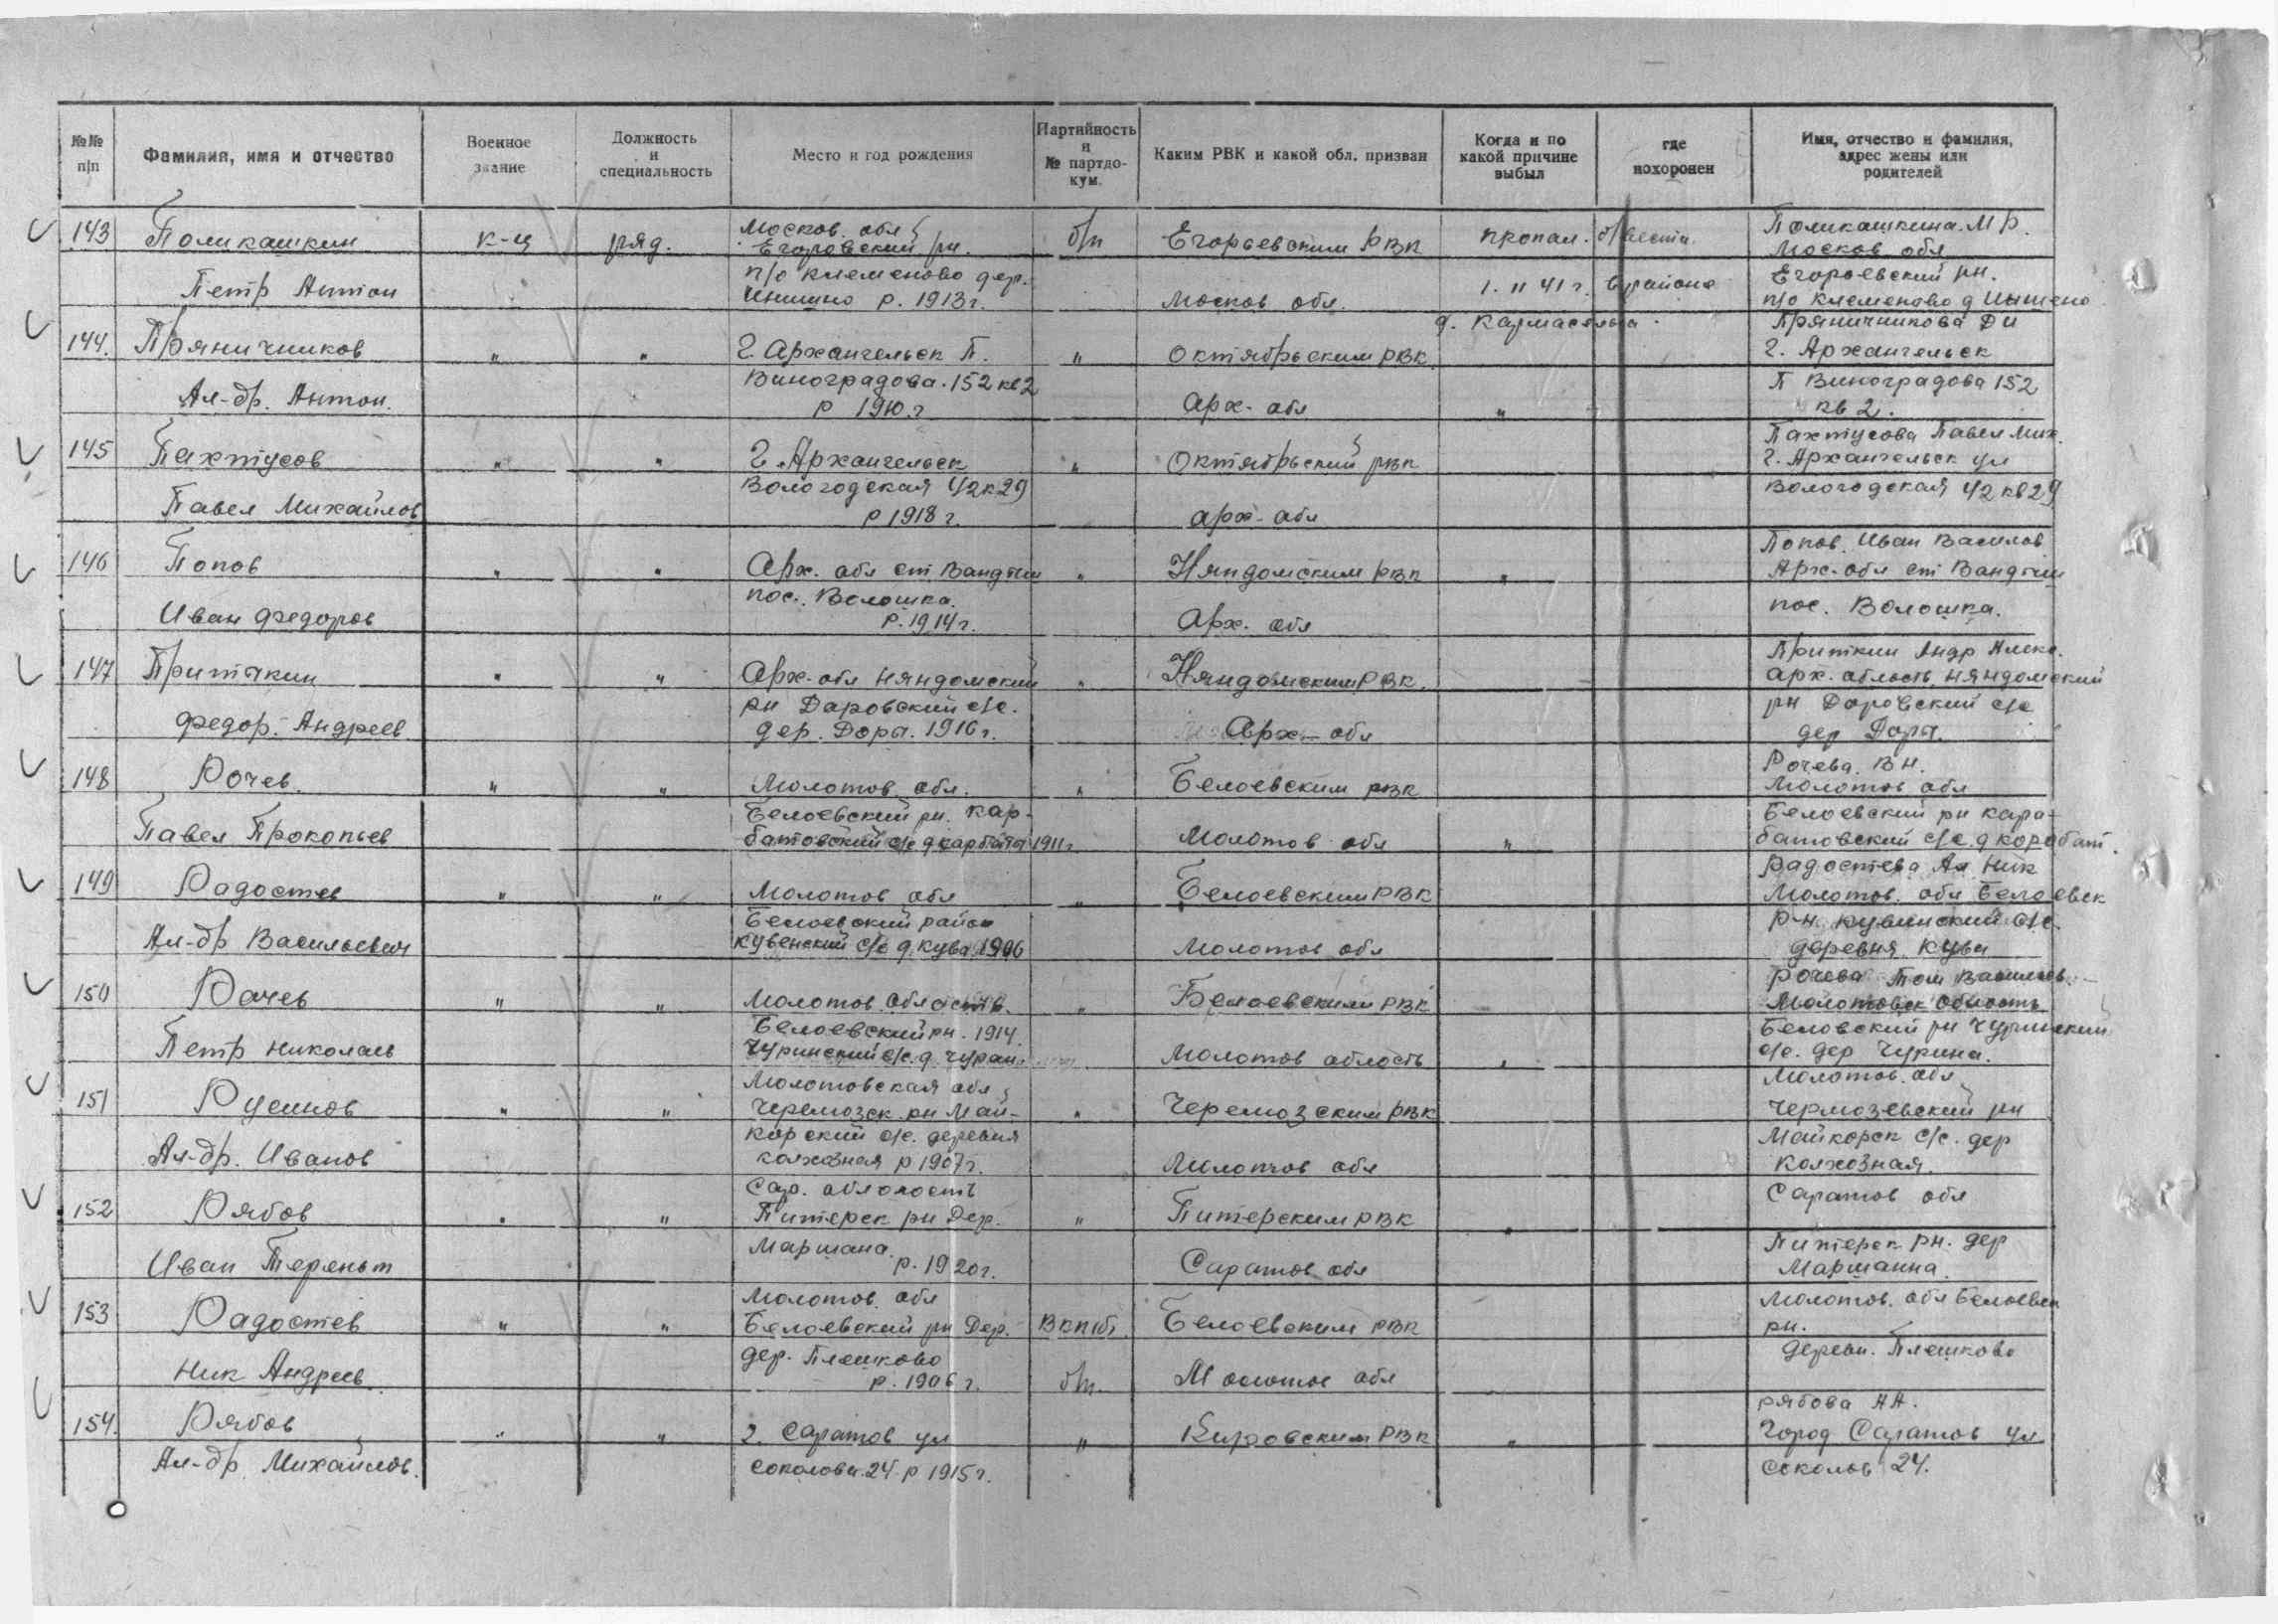 №№ п/п
Фамилия, имя и отчество
Военное звание
Должность и специальность
Место и год рождения
Партийность и № партдокум.
Каким РВК и какой обл. призван
Когда и по какой причине выбыл
где похоронен
Имя, отчество и фамилия, адрес жены или родителей
143 Поликашкин к-ц ряд. Москов. обл б/п Егорьевским РВК пропал. б/вести. Поликашкина. М Р.
Егоровский рн. Москов обл
Петр Антон п/о Клеменово дер. Москов обл. 1. 11 41 г. в районе Егорьевский рн.
р. 1913 г. п/о Клеменово д
д. Кармасельга
144. Пряничников " " г. Архангельск П. " Октябрьским РВК Пряничникова
г. Архангельск
Ал-др. Антон. Виноградова. 152 кв 2 Арх. обл " П Виноградова 152
р 1910. г кв 2.
145 Пахтусов " " г. Архангельск " Октябрьский рвк Пахтусова Павел Мих.
г. Архангельск ул
Павел Михайлов Вологодская 42 к 29 арх. обл Вологодская 42 кв 29
р 1918 г.
146 Попов " " Арх. обл ст Вандыш " Няндомским РВК " Попов. Иван Василов
Арх. обл ст Вандыш
Иван Федоров пос. Волошка. Арх. обл пос. Волошка.
р. 1914 г.
147 Приткин " " Арх. обл Няндомский " Няндомским РВК. Приткин Андр Алекс.
арх. область Няндомский
Федор. Андреев. рн Даровский с/с. Арх. обл рн Даровский с/с
дер. Доры. 1916 г. дер Доры.
148 Рочев. " " Молотов. обл. " Белоевским рвк Рочева. В Н.
Молотов обл
Павел Прокопьев Белоевский рн. Кар- Молотов обл " Белоевский рн кара-
батовский с/с д карбаты 1911 г. батовский с/с. д коробат.
149 Радостев " " Молотов обл " Белоевским РВК Радостева Ал Ник
Молотов. обл Белоевск
Ал-др Васильевич Белоевский район Молотов обл р-н кувинский с/с.
кувенский с/с д кува 1906 деревня Кува
150 Рочев " " Молотов область. " Белоевским РВК Рочева
Молотовск область
Петр Николаев Белоевский рн. 1914. Молотов область " Беловский рн Чуринский
Чуринский с/с. д. с/с. дер Чурина.
151 Русинов " " Молотовская обл " Черемозским РВК Молотов. обл
Черемозск. рн Май- Чермозевский рн
Ал-др. Иванов корский с/с. деревня Молотов обл Майкорск с/с. дер
колхозная р 1907 г. Колхозная.
152 Рябов " " Сар. " Питерским РВК " Саратов обл
Питерск рн Дер.
Иван Терентт Маршана. Саратов обл Питерск рн. дер
р. 1920 г. Маршанна.
153 Радостев " " Молотов. обл ВКП(б) Белоевским РВК Молотов. обл Белоевск
Белоевский рн Дер. рн.
Ник Андреев. дер. Плешково б/п. Молотов обл деревн. Плешково
р. 1906 г.
154. Рябов " " г. Саратов ул " Кировским РВК " Рябова А А.
Город Саратов ул
Ал-др Михайлов. Соколовн. 24. р 1915 г. Соколов 24.